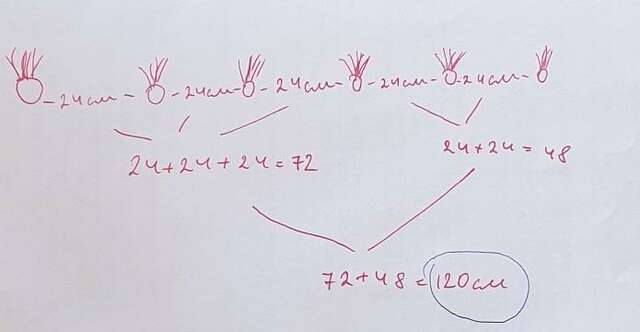 - 24 см - - 24 см - - 24 см - - 24 см - - 24 см -
24 + 24 + 24 = 72
24 + 24 = 48
72 + 48 = 120 см